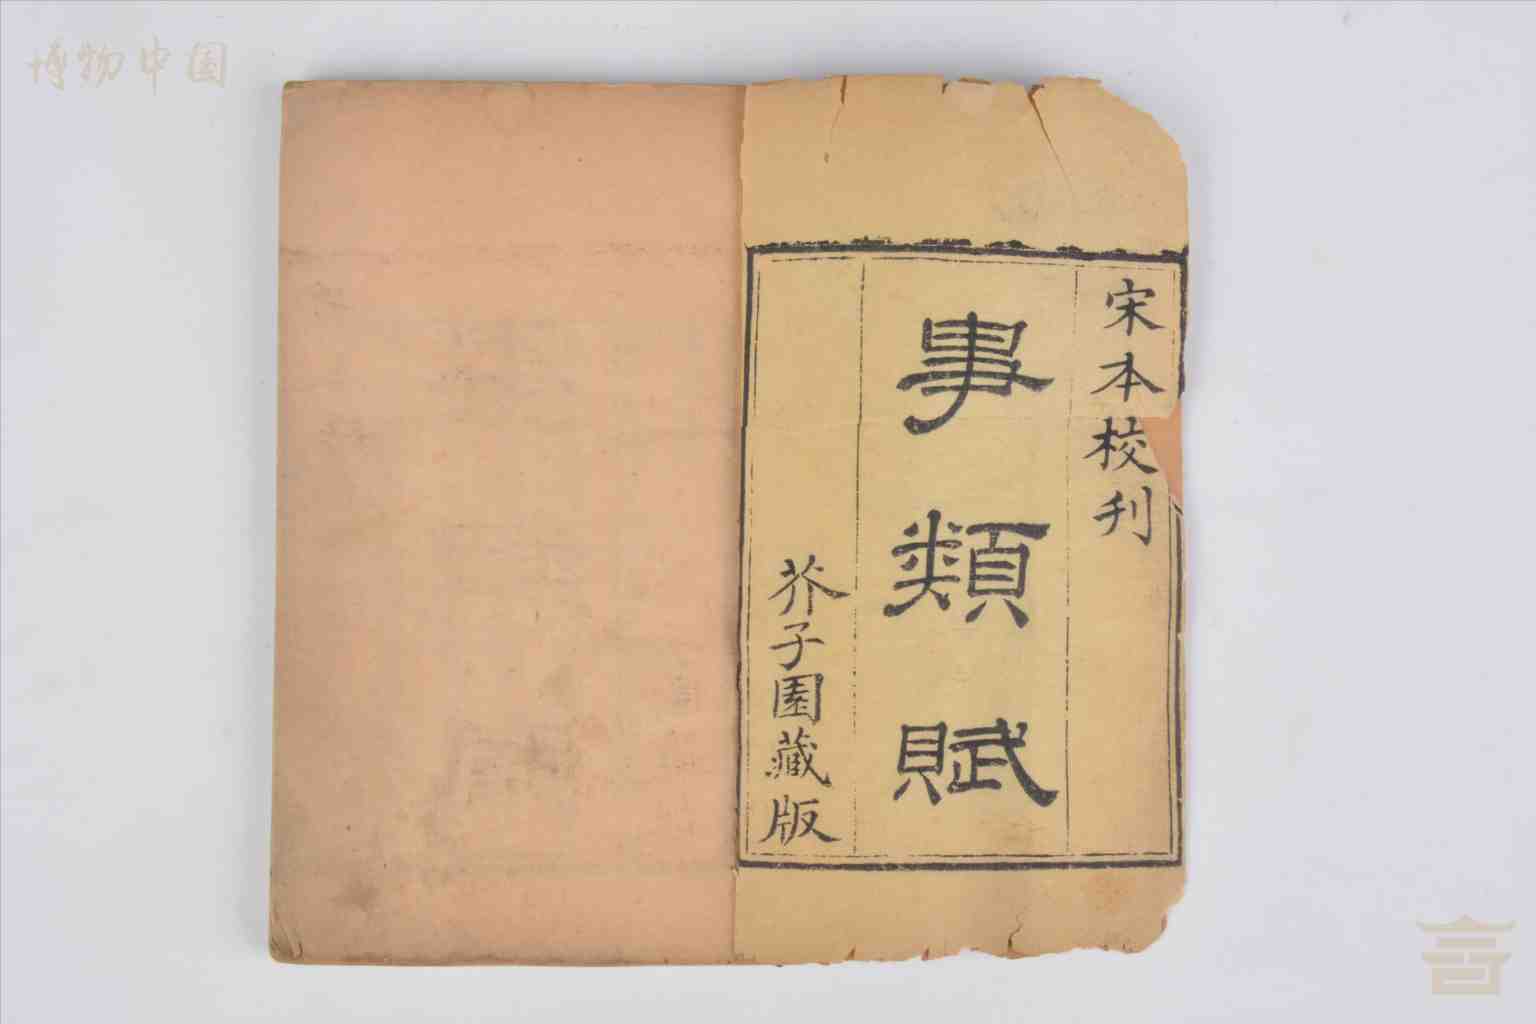 博物中国
宋本校刋
事類賦
芥子園藏版